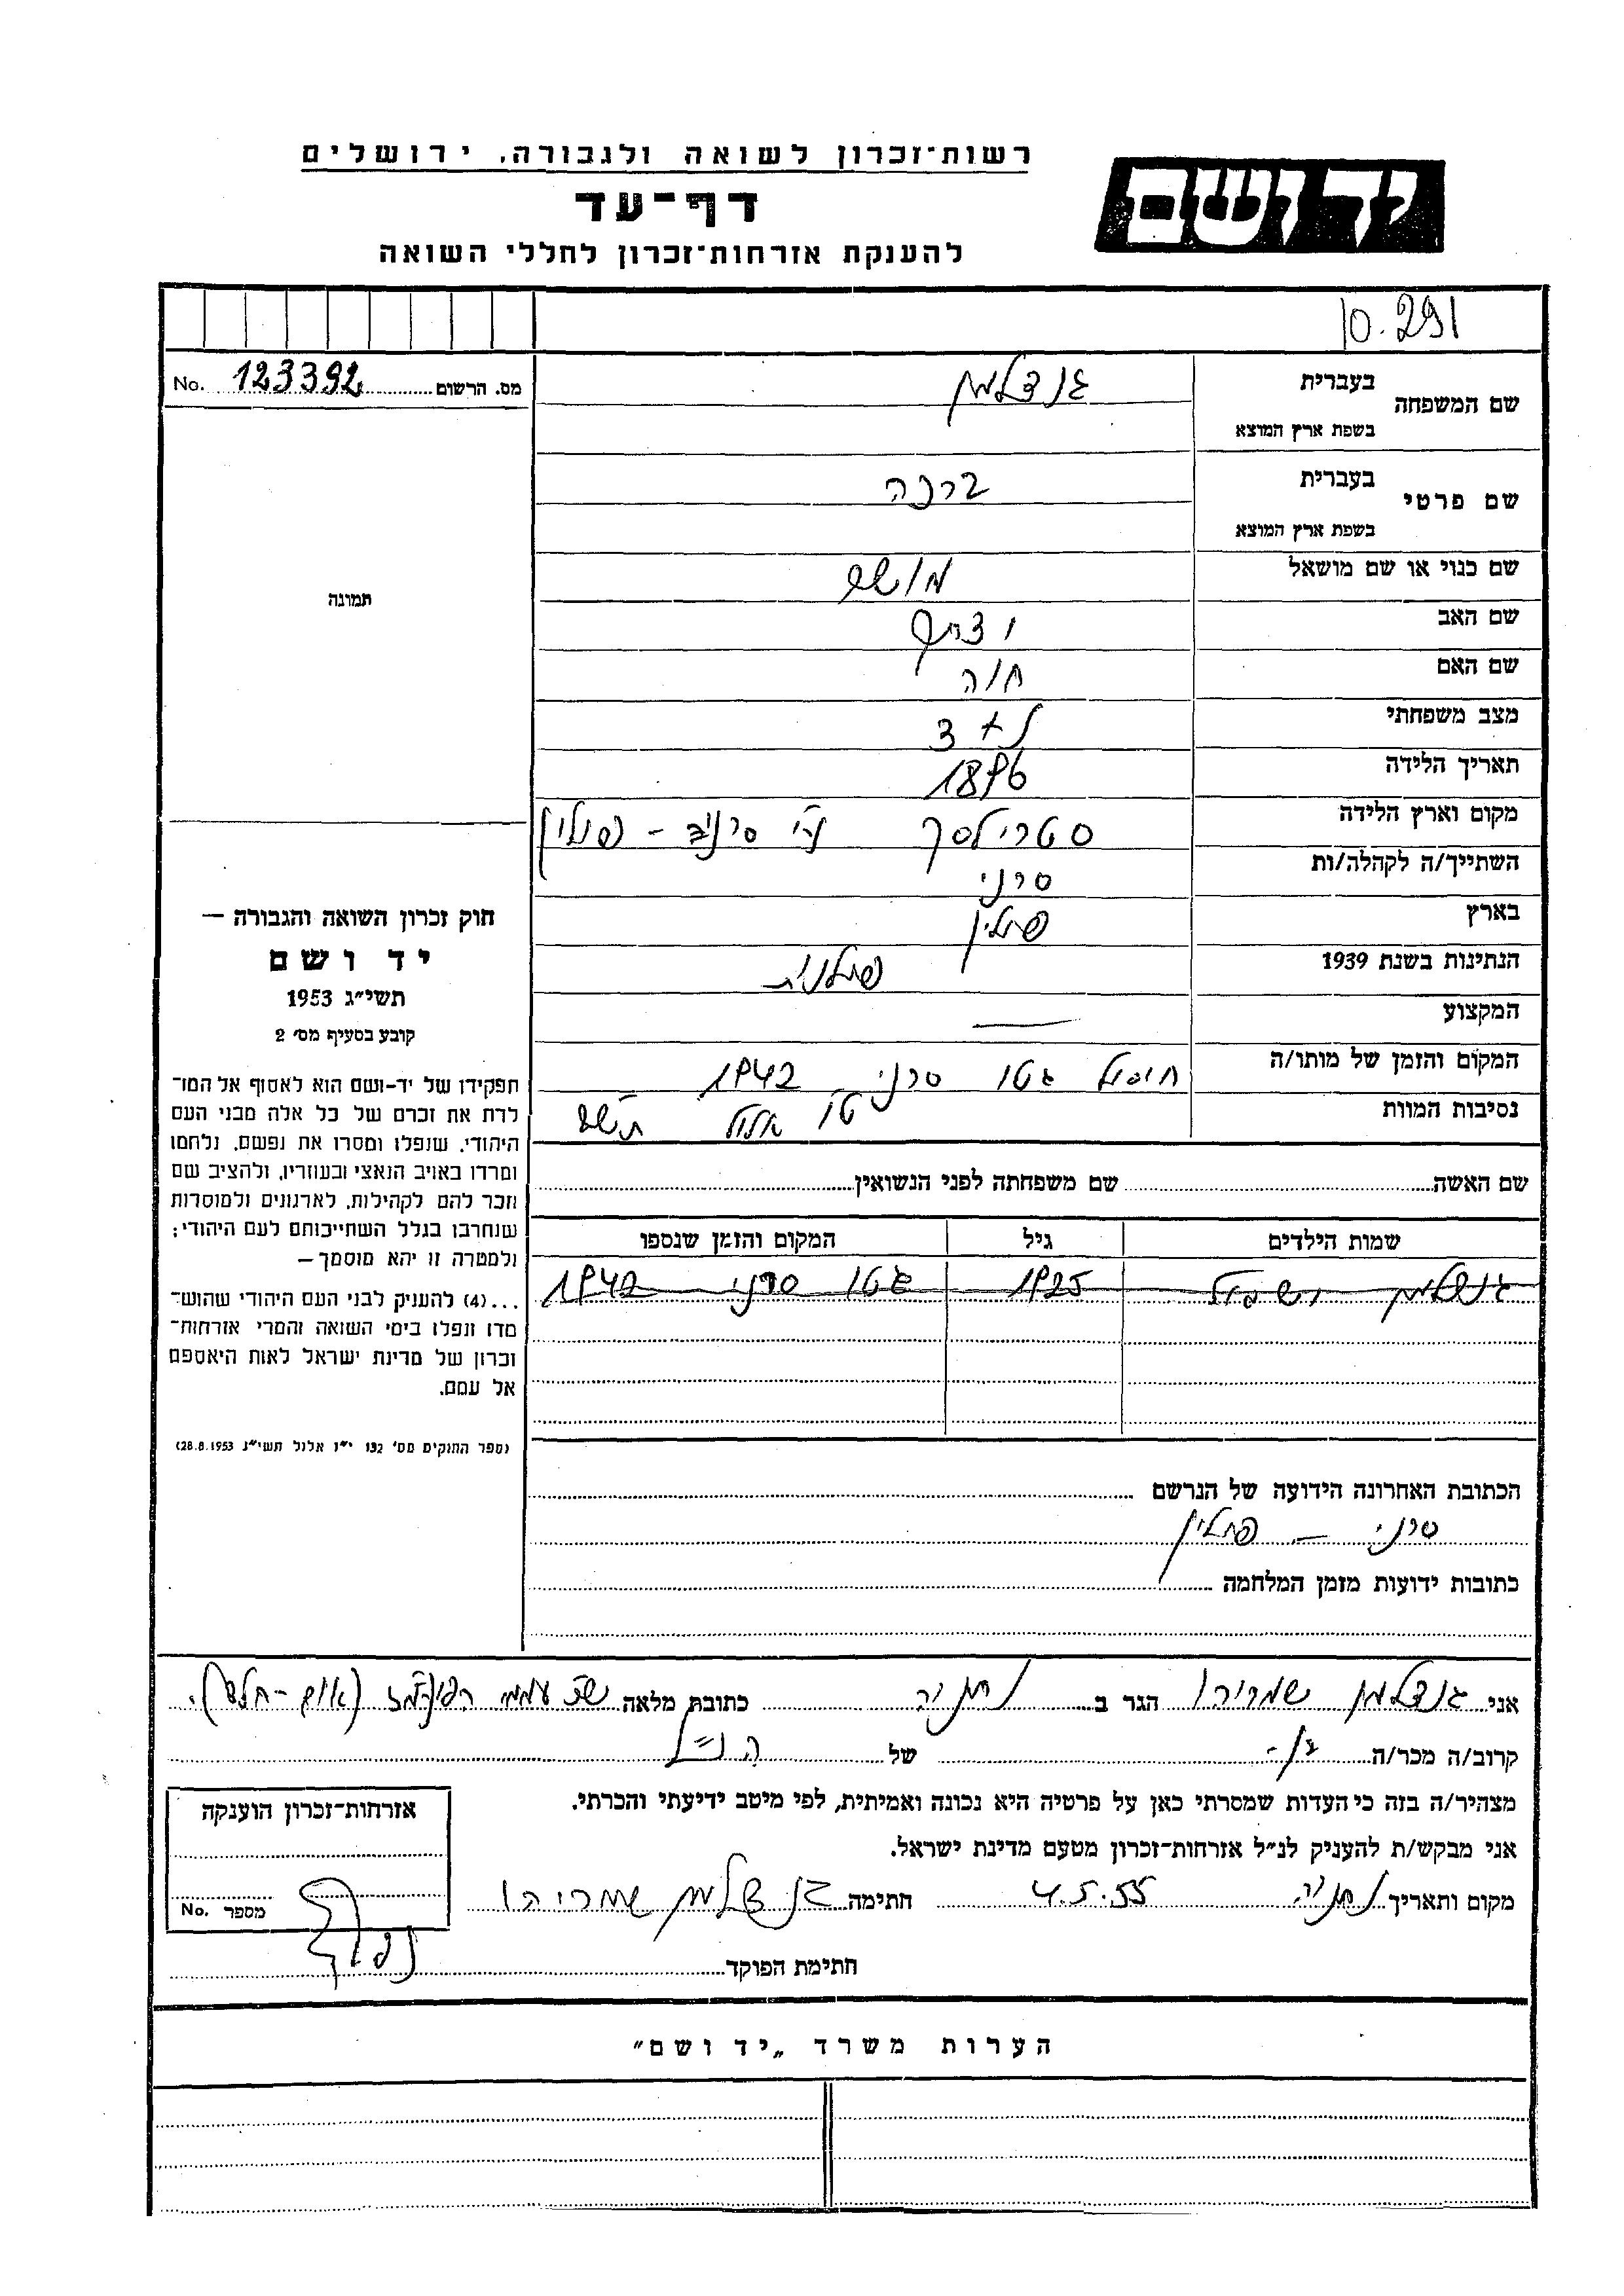 רשות־זכרון לשואה ולגבורה, ירושלים
יד ושם
דף־עד
להענקת אזרחות־זכרון לחללי השואה
10.291
No. 123392 מס. הרשום
שם המשפחה בעברית גנדלמן
בשפת ארץ המוצא
שם פרטי בעברית ברכה
בשפת ארץ המוצא
שם כנוי או שם מושאל
שם האב
שם האם חוה
מצב משפחתי + 3
תאריך הלידה 1896
מקום וארץ הלידה סטרילסק ע"י סרני - פולין
השתייך/ה לקהלה/ות סרני
בארץ פולין
הנתינות בשנת 1939 פולנית
המקצוע —
המקום והזמן של מותו/ה חיסול גטו סרני 1942
נסיבות המוות אלול
תמונה
חוק זכרון השואה והגבורה —
יד ושם
תשי״ג 1953
קובע בסעיף מס׳ 2
תפקידן של יד-ושם הוא לאסוף אל המו־
לדת את זכרם של כל אלה מבני העם
היהודי, שנפלו ומסרו את נפשם, נלחמו
ומרדו באויב הנאצי ובעוזריו, ולהציב שם
וזכר להם לקהילות, לארגונים ולמוסדות
שנחרבו בגלל השתייכותם לעם היהודי;
ולמטרה זו יהא מוסמך—
...(4) להעניק לבני העם היהודי שהוש־
מדו ונפלו בימי השואה והמרי אזרחות־
זכרון של מדינת ישראל לאות היאספם
אל עמם.
(ספר החוקים מס׳ 132 י״ז אלול תשי״ג 28.8.1953)
שם האשה שם משפחתה לפני הנשואין
שמות הילדים גיל המקום והזמן שנספו
1925 גטו סרני 1942
הכתובת האחרונה הידועה של הנרשם
סרני — פולין
כתובות ידועות מזמן המלחמה
אני גנדלמן שמריהו הגר ב נתניה כתובת מלאה
קרוב/ה מכר/ה בן- של הנ״ל
מצהיר/ה בזה כי העדות שמסרתי כאן על פרטיה היא נכונה ואמיתית, לפי מיטב ידיעתי והכרתי.
אני מבקש/ת להעניק לנ״ל אזרחות־זכרון מטעם מדינת ישראל.
מקום ותאריך נתניה 4.5.55 חתימה גנדלמן שמריהו
אזרחות־זכרון הוענקה
מספר No.
חתימת הפוקד
הערות משרד „יד ושם״